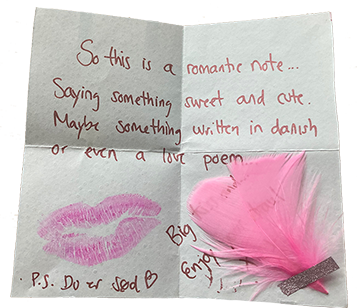 So this is a romantic note...
Saying something sweet and cute.
Maybe something written in danish
or even a love poem
Big
Enjoy
P.S. Du er sød ♡